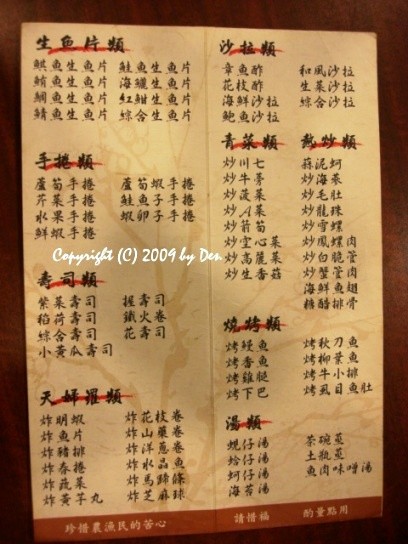 生魚片類
鯕魚生魚片 鮭魚生魚片
鮪魚生魚片 海鱺生魚片
鯛魚生魚片 紅魽生魚片
鯖魚生魚片 綜合生魚片
手捲類
蘆筍手捲 蘆筍魚手捲
芹菜手捲 鮭魚子手捲
水果手捲 蝦卵手捲
鮮蝦手捲
壽司類
紫菜壽司 握壽司
稻荷壽司 鐵火卷
綜合壽司 花壽司
小黃瓜壽司
天婦羅類
炸明蝦 炸花枝卷
炸魚片 炸山藥卷
炸豬排 炸洋蔥
炸春捲 炸水晶魚
炸蔬菜 炸馬蹄條
炸黃芋丸 炸芝麻球
珍惜農漁民的苦心
沙拉類
章魚酢 和風沙拉
花枝酢 生菜沙拉
海鮮沙拉 綜合沙拉
鮑魚沙拉
青菜類
炒川七
炒牛蒡
炒菠菜
炒A菜
炒箭筍
炒空心菜
炒高麗菜
炒生香菇
熱炒類
蒜泥蚵
炒海蔘
炒毛肚
炒龍珠
炒雪螺
炒鳳螺肉
炒白脆管
炒蟹管肉
海鮮魚翅
糖醋排骨
燒烤類
烤鰻魚 烤秋刀魚
烤香魚 烤柳葉魚
烤雞腿 烤牛小排
烤下巴 烤虱目魚肚
湯類
蜆仔湯 茶碗蒸
蛤仔湯 土瓶蒸
蚵仔湯 魚肉味噌湯
海苔湯
請惜福 酌量點用
Copyright (C) 2009 by Den